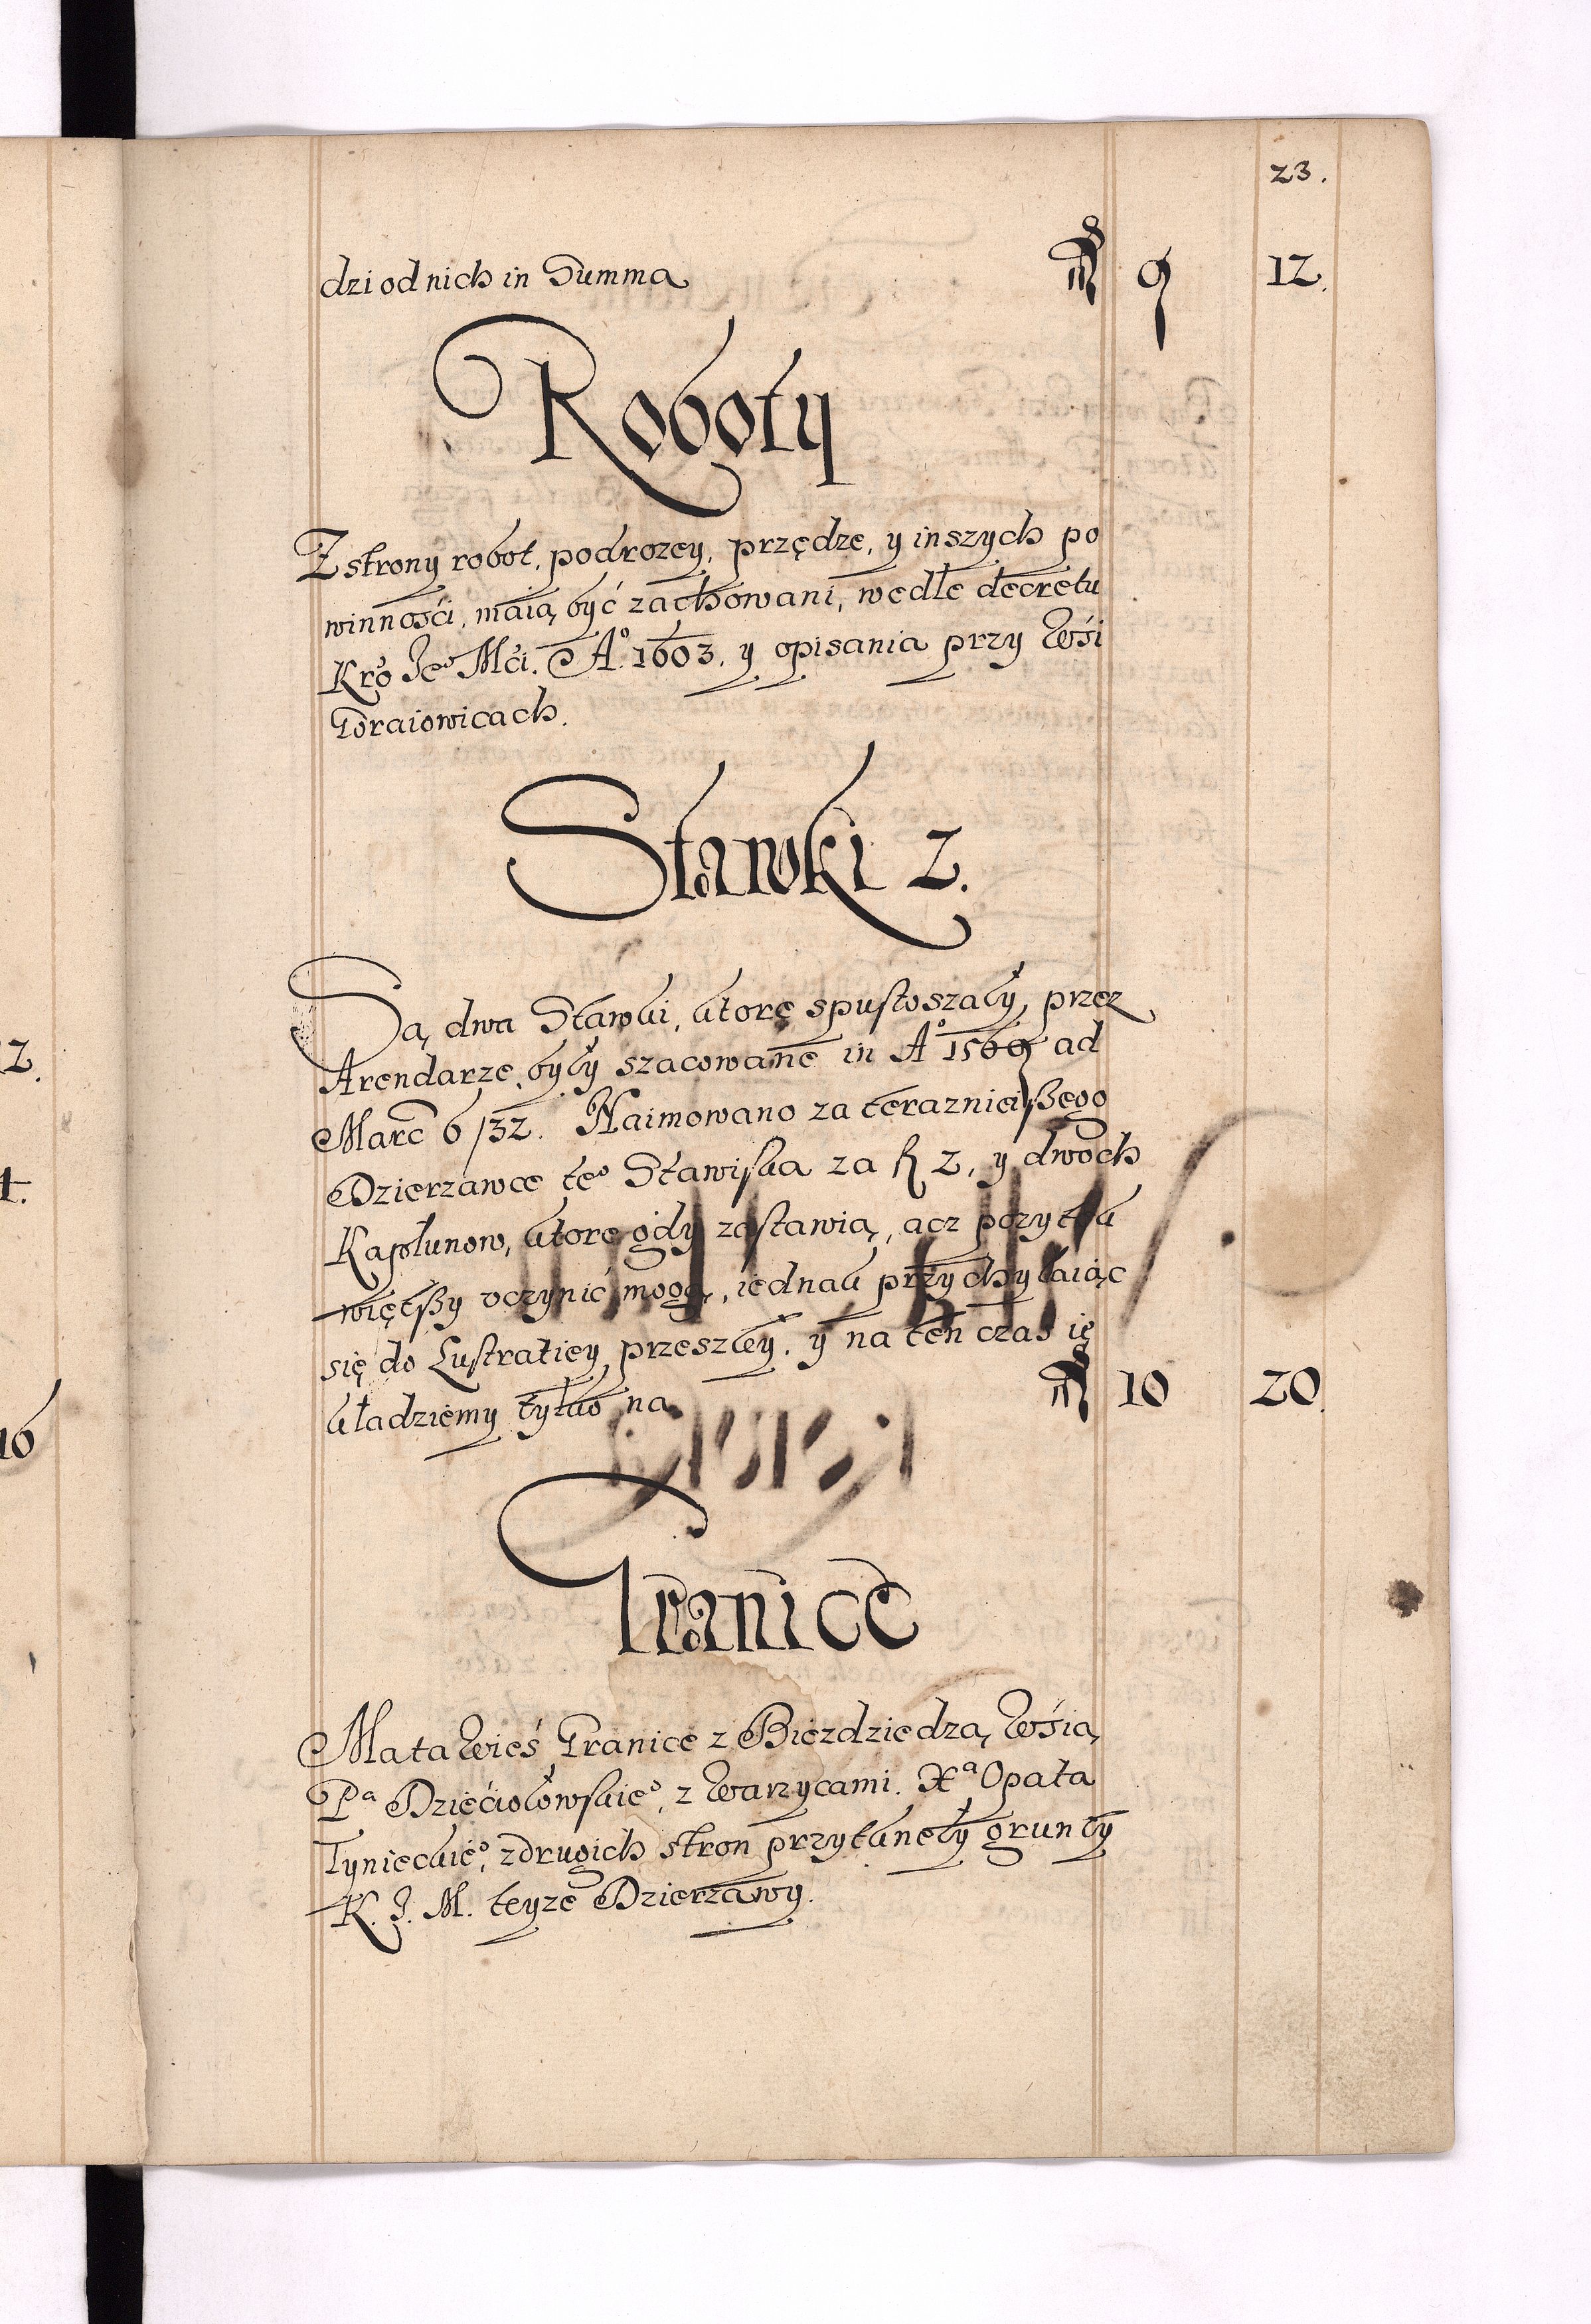 23.
dzi od nich in Summa 9 12.
Roboty
Z strony robot, podrozey, przędze, y inszych po
winnośći, maią być zachowani, wedle decretu
Kro Jeº Mći. Aº 1603. y opisania przy Wśi
Goraiowicach.
Stawki 2.
Są dwa Stawki, ktorę spustoszały, przez
Arendarze, były szacowane in Aº 1569 ad
Marc 6 /32. Naimowano za teraznieiszego
Dzierzawce teº Stawiska za R 2, y dwoch
Kapłunow, ktorę gdy zostawią, acz pozytku
więtszy vczynić mogą, iednak przychylaiąc
się do Lustratiey przeszłey, y na ten czas ię
kładziemy tylko na 10 20.
Granice
Mata Wieś Granice z Bierdziedzą Wśią,
Pª Dzięciołowskieº, z Warzycami Xª Opata
Tynieckieº, z drugich stron przytknęły grunty
K. J. M. teyze Dzierzawy.
2.
4.
16